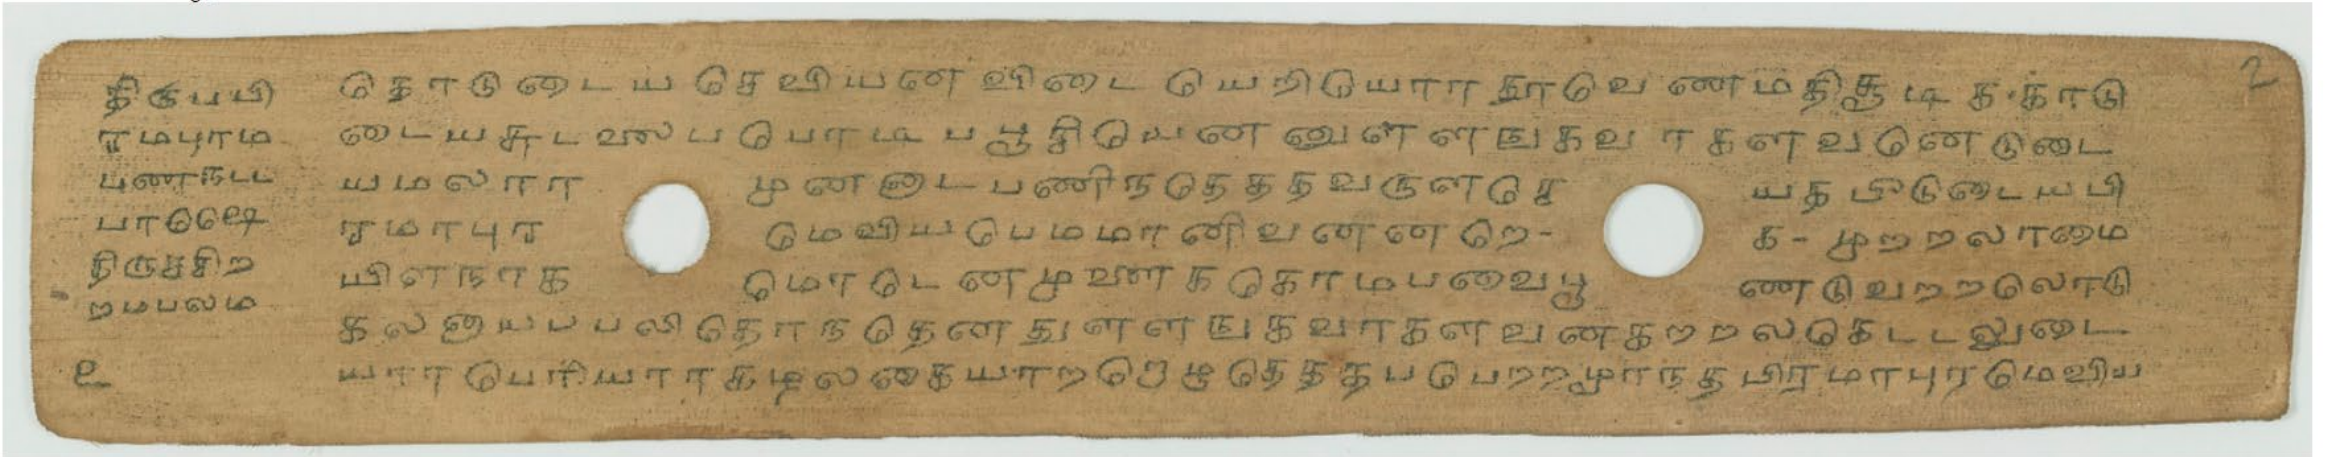 திருபபி
ரமபுரம
பணநடட
பாடை
திருசசிற
றமபலம
௨
தொடுடைய செவியன விடை யெறியொர தூவெணமதிசூடிக-காடு
டையசுடலைபபொடி பூசியென னுளளஙகவர களவனெடுடை
யமலரா முனனாடபணிநதெததவருளசெ யதபீடுடையபி
ரமாபுர மெவியபெமமானிவனனறெ- க- முறறலாமை
யிளநாக மொடெனமுளைககொமபவைபூ ணடுவறறலொடு
கலனாயபபலிதெரநதெனதுளளஙகவரகளவணகறறலகெடடலுடை
யாரபெரியாரகழலகையாறறெழுதெததபபெறறமூரநதபிரமாபுரமெவிய
2